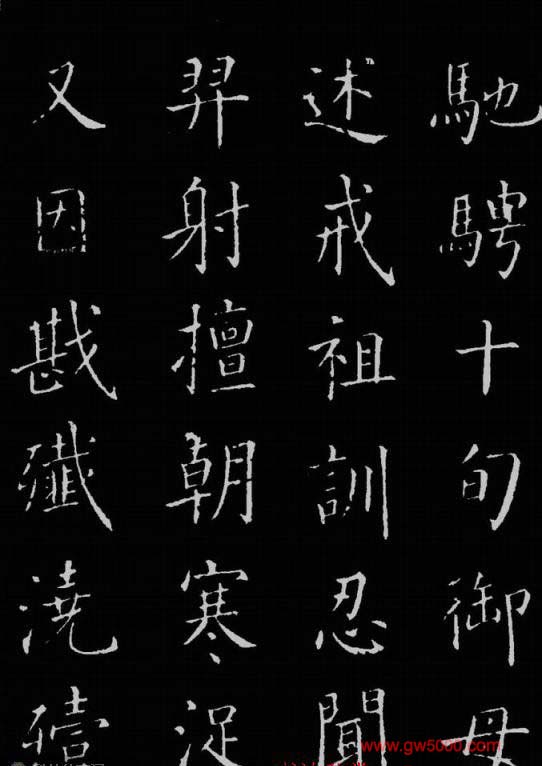 馳騁十旬御母
述戒祖訓忍聞
羿射擅朝寒浞
又因戡殲澆殪
www.gw5000.com